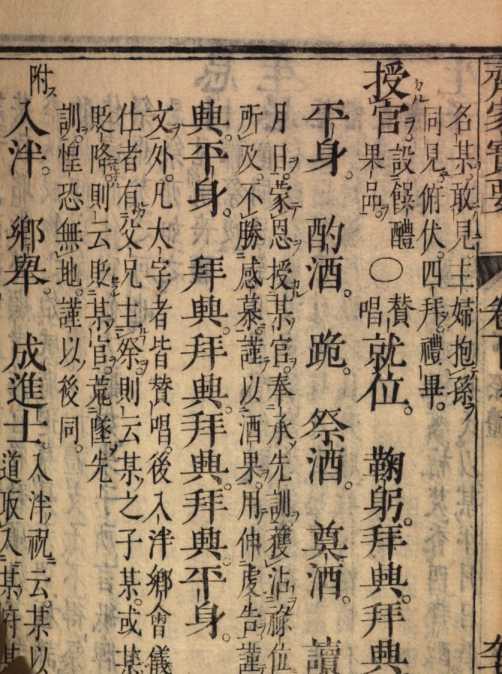 齊家寶要 卷下
名某敢見主婦抱孫
同見俯伏四拜禮畢
授官 設饌醴果品 ○ 贊唱 就位。鞠躬。拜興拜興
平身。酌酒。跪。祭酒。奠酒。讀
月日。蒙恩授某官。奉承先訓獲沾祿位
所及。不勝感慕。謹以酒果。用伸虔告謹
興。平身。拜興。拜興。拜興。拜興。平身。
文外。凡大字者皆贊唱。後入泮鄉會儀
仕者有父兄主祭則云某之子某。或某
貶降則云貶某官。荒墜先
訓。惶恐無地。謹以後同。
附 入泮。鄉舉。成進士。入泮祝云。某以
道取入某府某